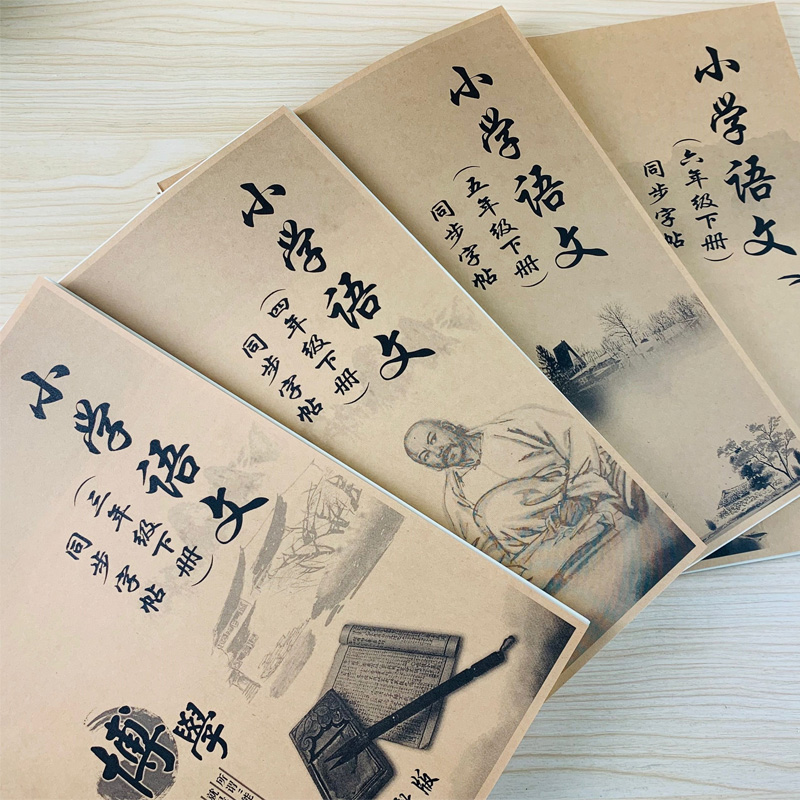 小学语文
(三年级下册)
同步字帖
博學
小学语文
(四年级下册)
同步字帖
小学语文
(五年级下册)
同步字帖
小学语文
(六年级下册)
同步字帖
版
所谓
就
能